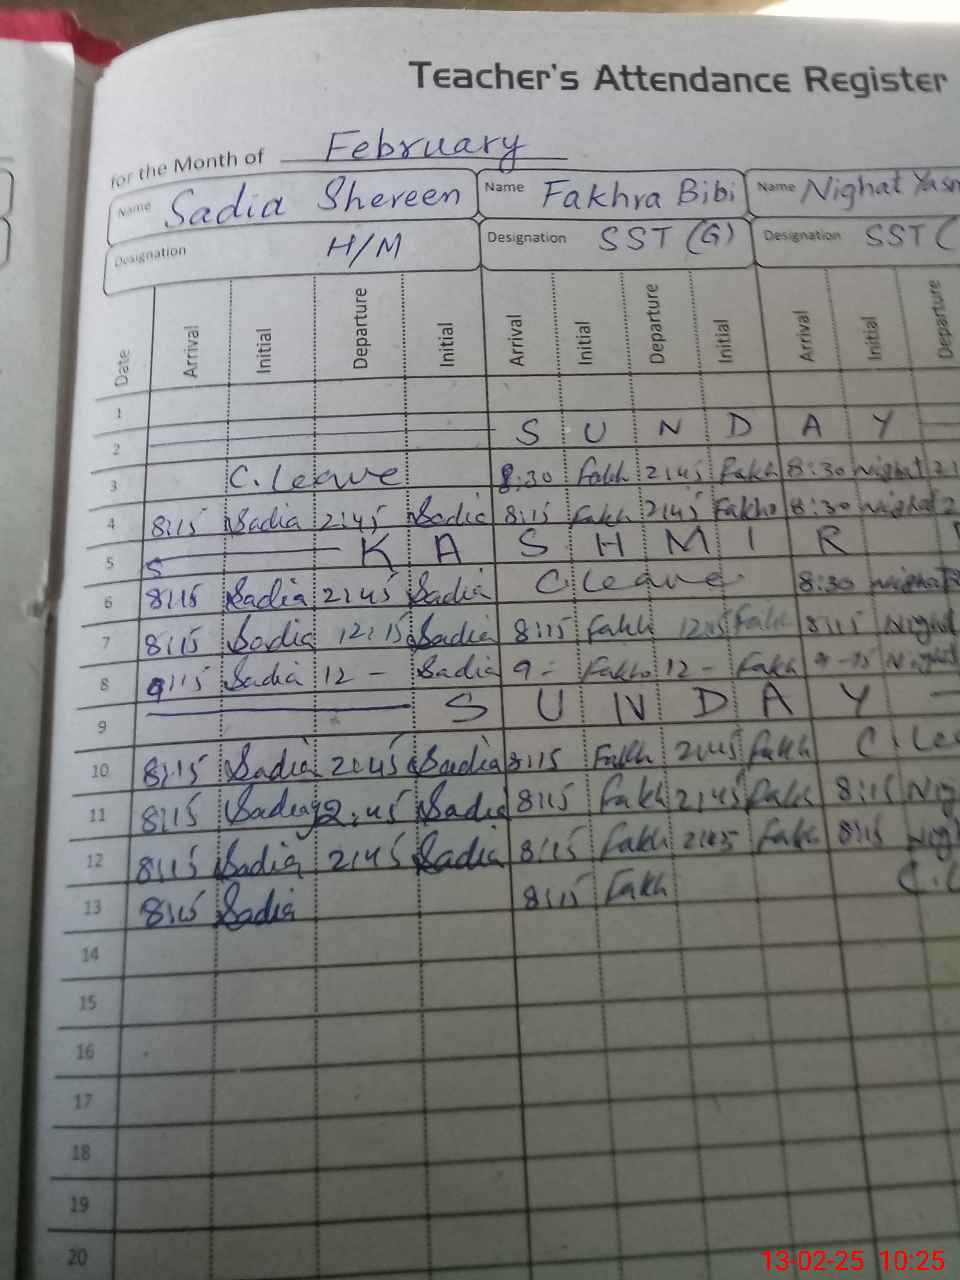 Teacher's Attendance Register
for the Month of February
Name Sadia Shereen Name Fakhra Bibi Name Nighat Yasm
Designation H/M Designation SST (G) Designation SST (
Date Arrival Initial Departure Initial Arrival Initial Departure Initial Arrival Initial Departure
1
2 S U N D A Y
3 C. Leave 8:30 Fakh 2:45 Fakh 8:30 Nighat 2:
4 8:15 Sadia 2:45 Sadia 8:15 Fakh 2:45 Fakhr 8:30 Nighat 2
5 K A S H M I R
6 8:15 Sadia 2:45 Sadia C. Leave 8:30 Nighat
7 8:15 Sadia 12:15 Sadia 8:15 Fakh Fakh 8:15 Night
8 9:15 Sadia 12 - Sadia 9 - Fakh 12 - Fakh
9 S U N D A Y
10 8:15 Sadia 2:45 Sadia 8:15 Fakh 2:45 Fakh C. Lea
11 8:15 Sadia 2:45 Sadia 8:15 Fakh 2:45 Fakh 8:15 Nig
12 8:15 Sadia 2:45 Sadia 8:15 Fakh 2:45 Fakh 8:15 Nigh
13 8:15 Sadia 8:15 Fakh C.L
14
15
16
17
18
19
20
13-02-25 10:25